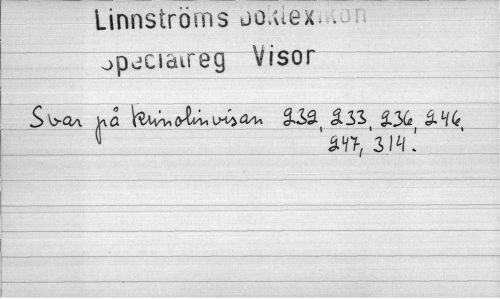 Linnströms Boklexikon
Specialreg Visor
Svar på krinolinvisan 232, 233, 236, 246,
247, 314.